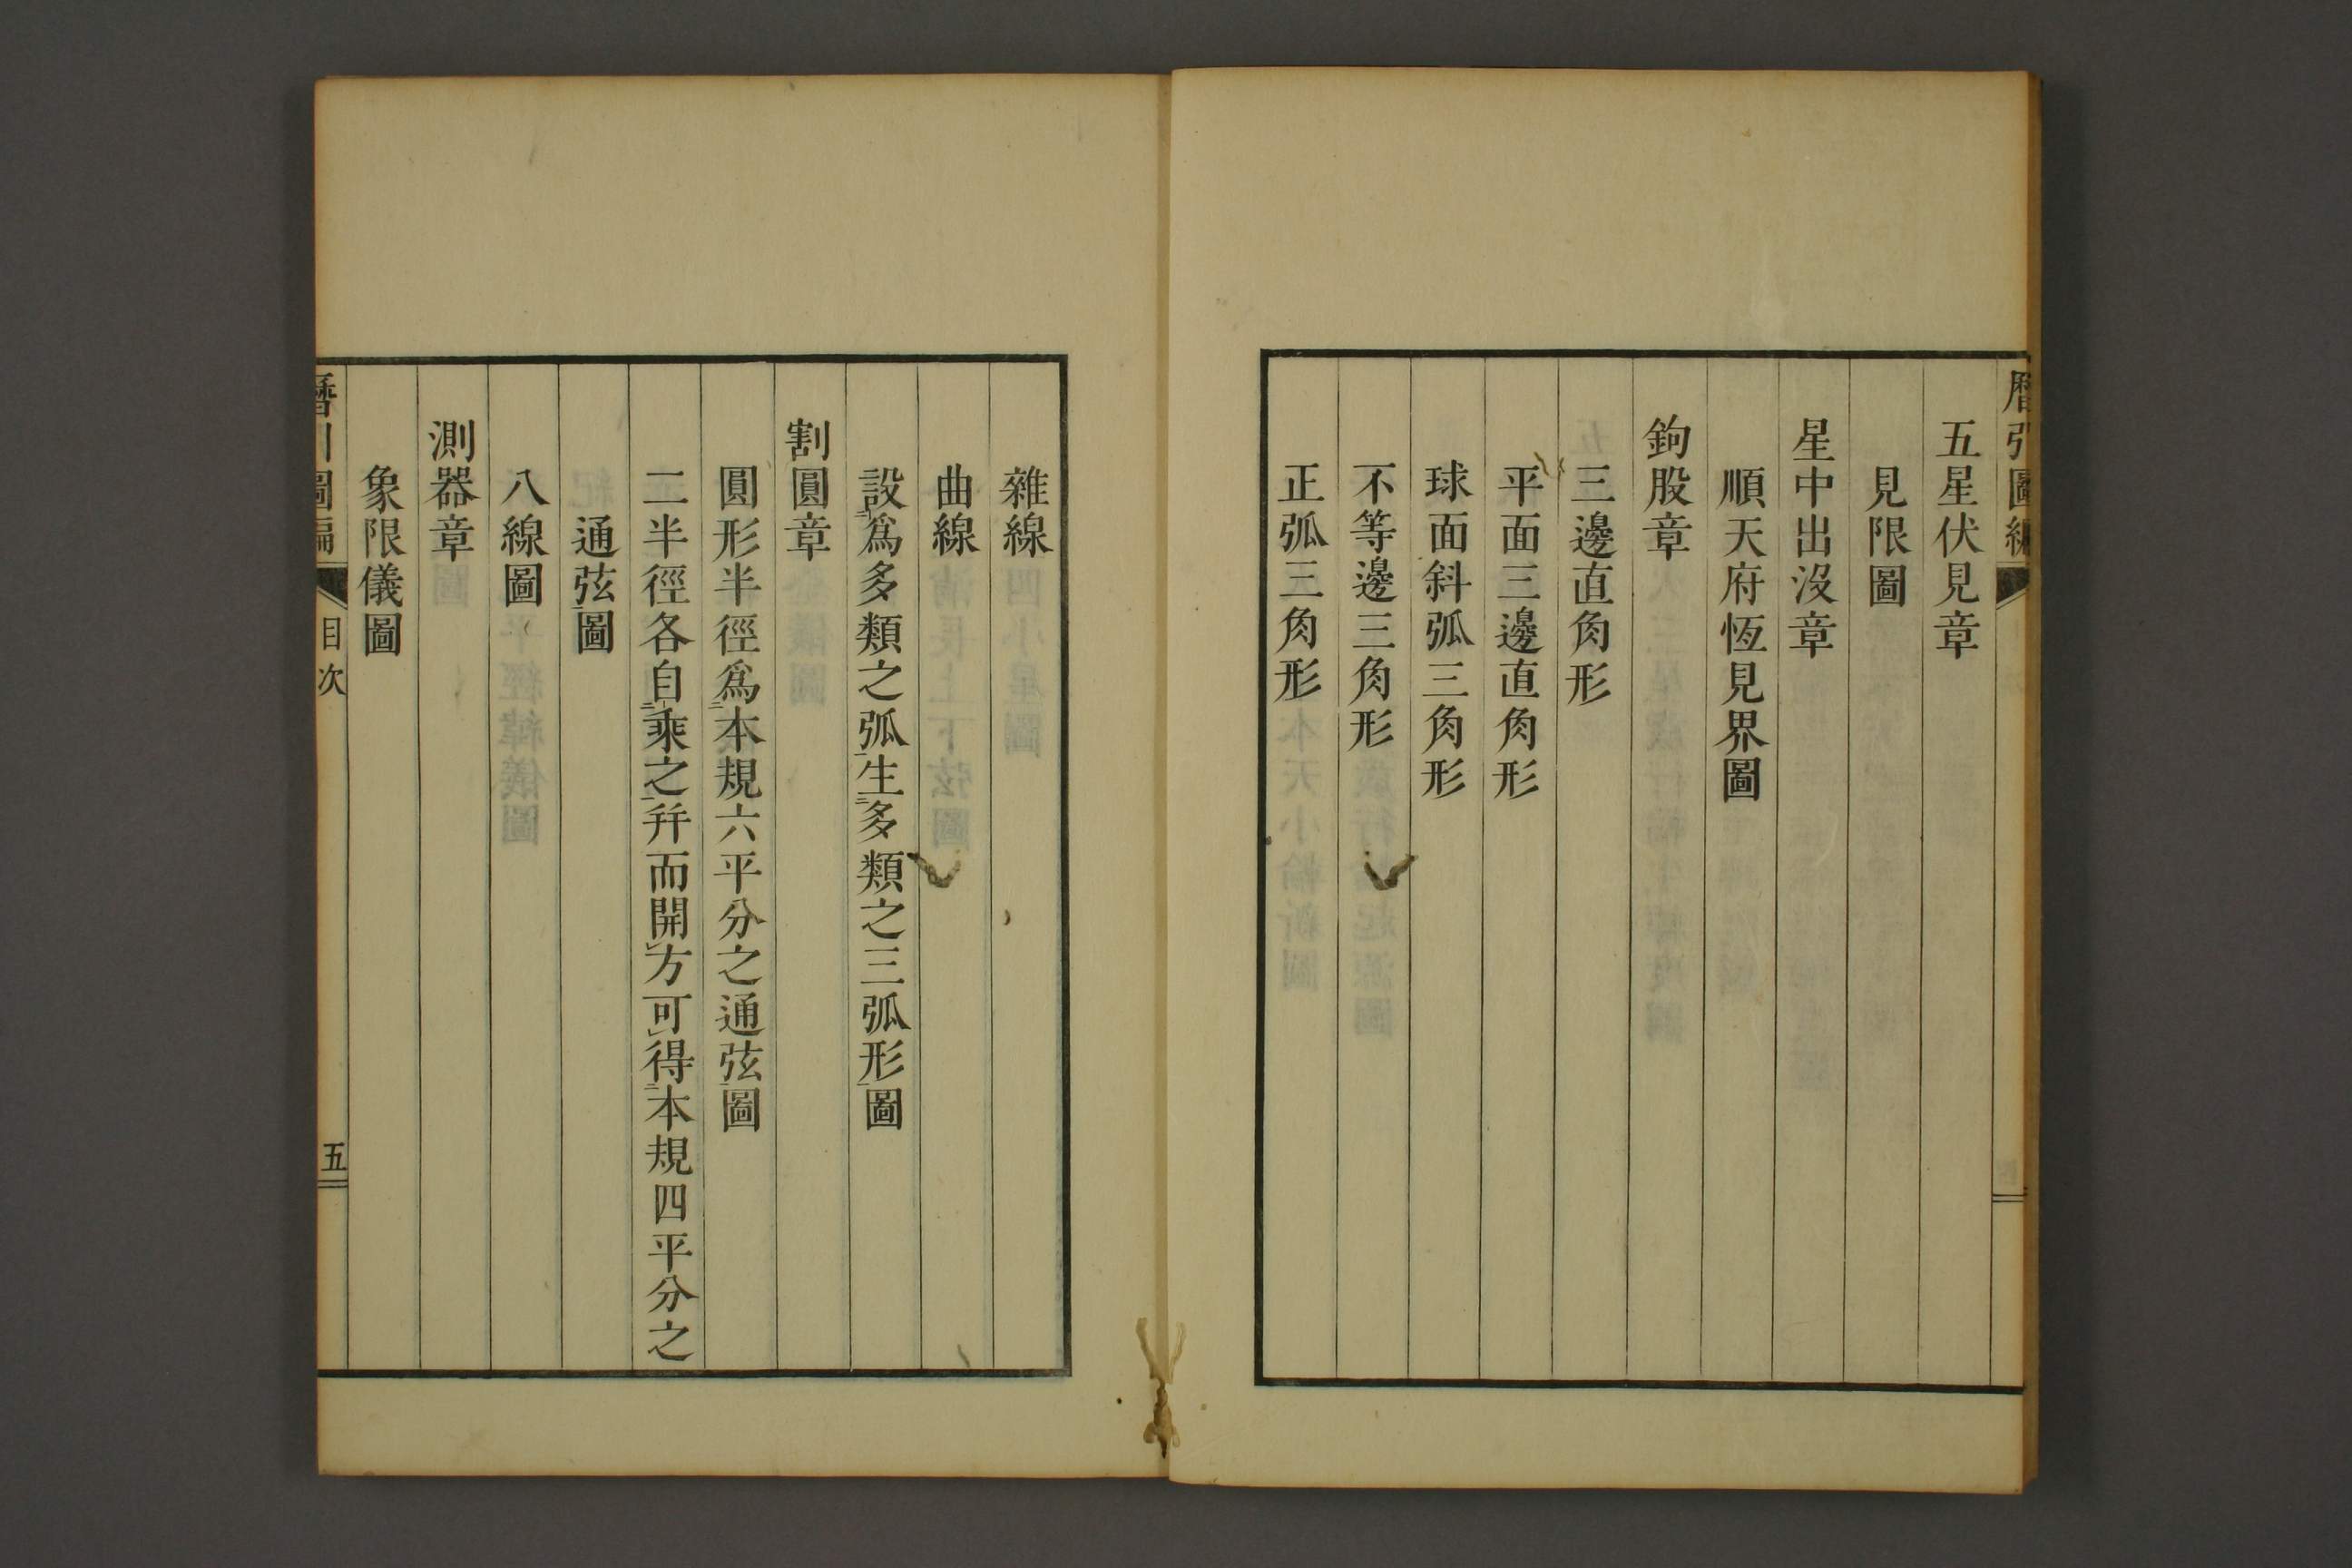 曆引圖編
五星伏見章
見限圖
星中出沒章
順天府恆見界圖
鉤股章
三邊直角形
平面三邊直角形
球面斜弧三角形
不等邊三角形
正弧三角形
雜線
曲線
設爲多類之弧生多類之三弧形圖
割圓章
圓形半徑爲本規六平分之通弦圖
二半徑各自乘之幷而開方可得本規四平分之
通弦圖
八線圖
測器章
象限儀圖
曆引圖編
目次
五